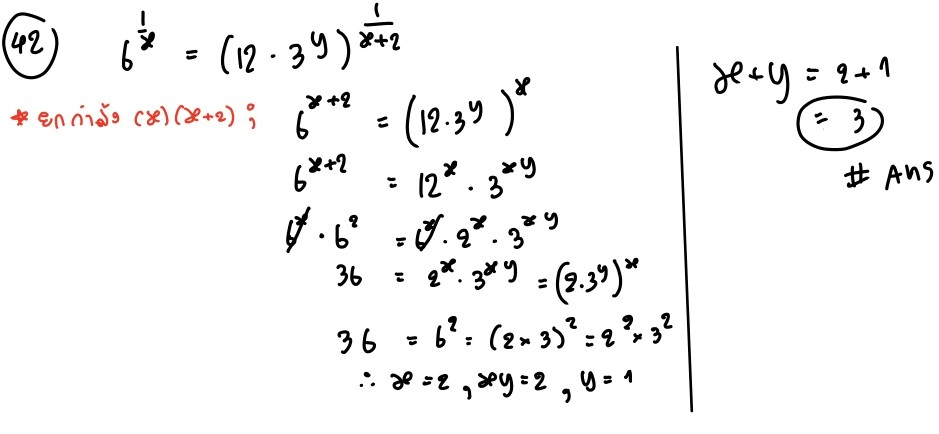 42 6^(1/x) = (12 · 3^y)^(1/(x+2))
* ยกกำลัง (x)(x+2) ;
6^(x+2) = (12·3^y)^x
6^(x+2) = 12^x · 3^(xy)
6^x · 6^2 = 6^x · 2^x · 3^(xy)
36 = 2^x · 3^(xy) = (2·3^y)^x
36 = 6^2 = (2×3)^2 = 2^2 × 3^2
∴ x = 2 , xy = 2 , y = 1
x+y = 2+1
= 3
# Ans